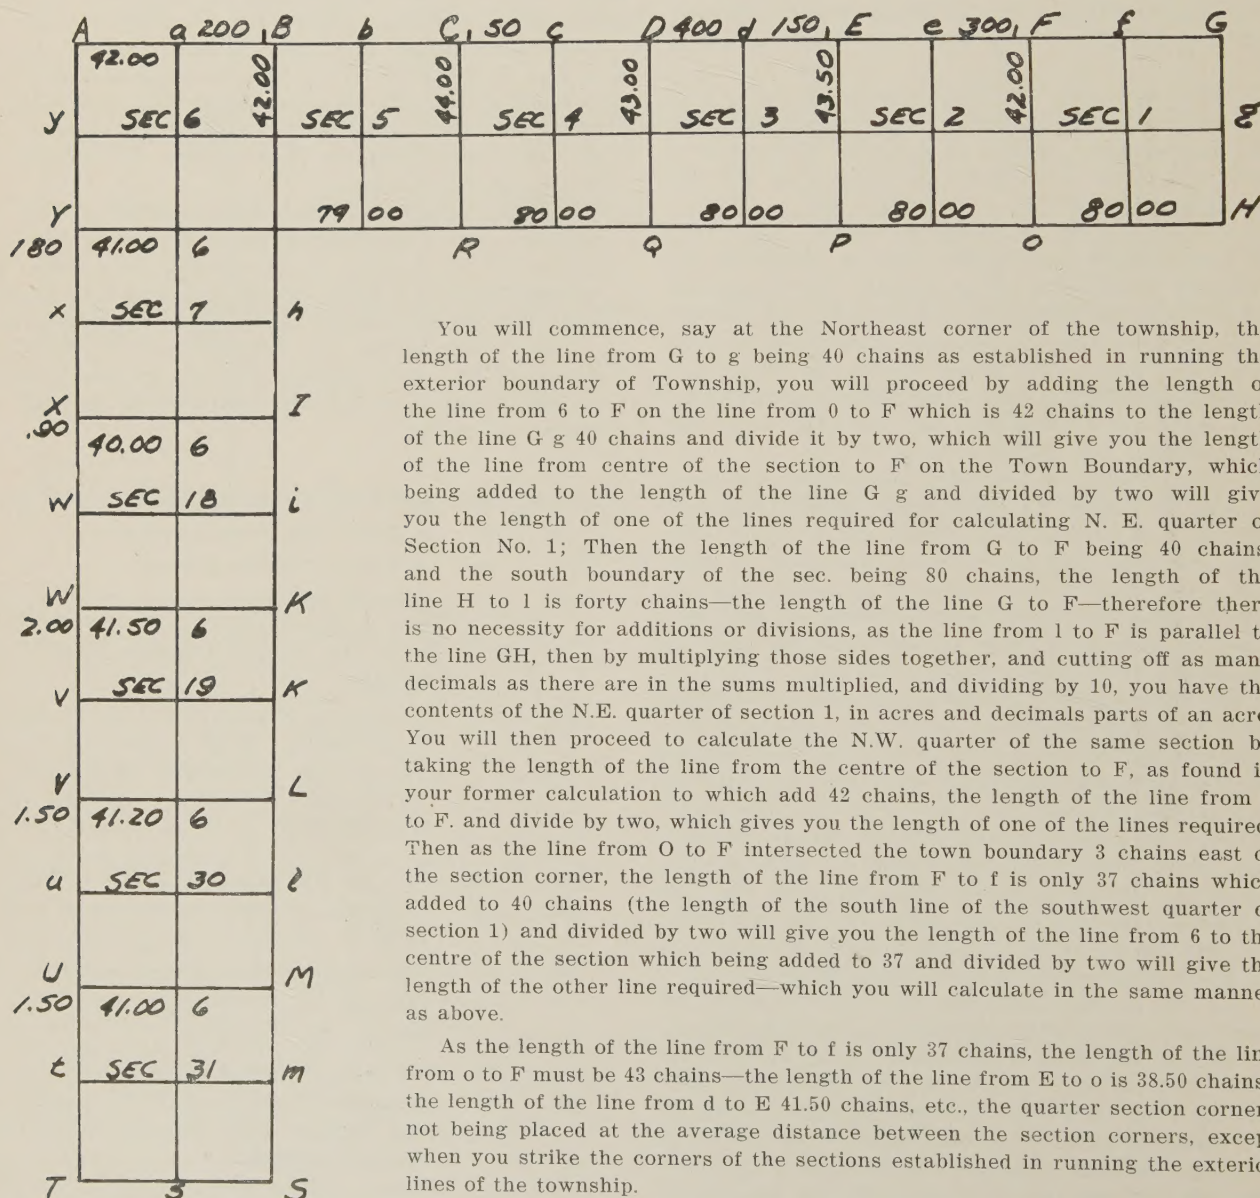 A a 200, B b C, 50 c D 400 d 150, E e 300, F f G
42.00 42.00 44.00 43.00 43.50 42.00
y SEC 6 SEC 5 SEC 4 SEC 3 SEC 2 SEC 1 g
Y 79 00 80 00 80 00 80 00 80 00 H
180 41.00 6 R Q P O
x SEC 7 h
X I
.90
40.00 6
w SEC 18 i
W K
2.00 41.50 6
v SEC 19 K
V L
1.50 41.20 6
u SEC 30 l
U M
1.50 41.00 6
t SEC 31 m
T S S
You will commence, say at the Northeast corner of the township, th
length of the line from G to g being 40 chains as established in running th
exterior boundary of Township, you will proceed by adding the length o
the line from 6 to F on the line from 0 to F which is 42 chains to the lengt
of the line G g 40 chains and divide it by two, which will give you the lengt
of the line from centre of the section to F on the Town Boundary, whic
being added to the length of the line G g and divided by two will giv
you the length of one of the lines required for calculating N. E. quarter o
Section No. 1; Then the length of the line from G to F being 40 chains
and the south boundary of the sec. being 80 chains, the length of th
line H to l is forty chains—the length of the line G to F—therefore ther
is no necessity for additions or divisions, as the line from l to F is parallel t
the line GH, then by multiplying those sides together, and cutting off as man
decimals as there are in the sums multiplied, and dividing by 10, you have th
contents of the N.E. quarter of section 1, in acres and decimals parts of an acre
You will then proceed to calculate the N.W. quarter of the same section b
taking the length of the line from the centre of the section to F, as found i
your former calculation to which add 42 chains, the length of the line from
to F. and divide by two, which gives you the length of one of the lines required
Then as the line from O to F intersected the town boundary 3 chains east o
the section corner, the length of the line from F to f is only 37 chains whic
added to 40 chains (the length of the south line of the southwest quarter o
section 1) and divided by two will give you the length of the line from 6 to th
centre of the section which being added to 37 and divided by two will give th
length of the other line required—which you will calculate in the same manne
as above.
As the length of the line from F to f is only 37 chains, the length of the lin
from o to F must be 43 chains—the length of the line from E to o is 38.50 chains
the length of the line from d to E 41.50 chains, etc., the quarter section corner
not being placed at the average distance between the section corners, excep
when you strike the corners of the sections established in running the exterio
lines of the township.